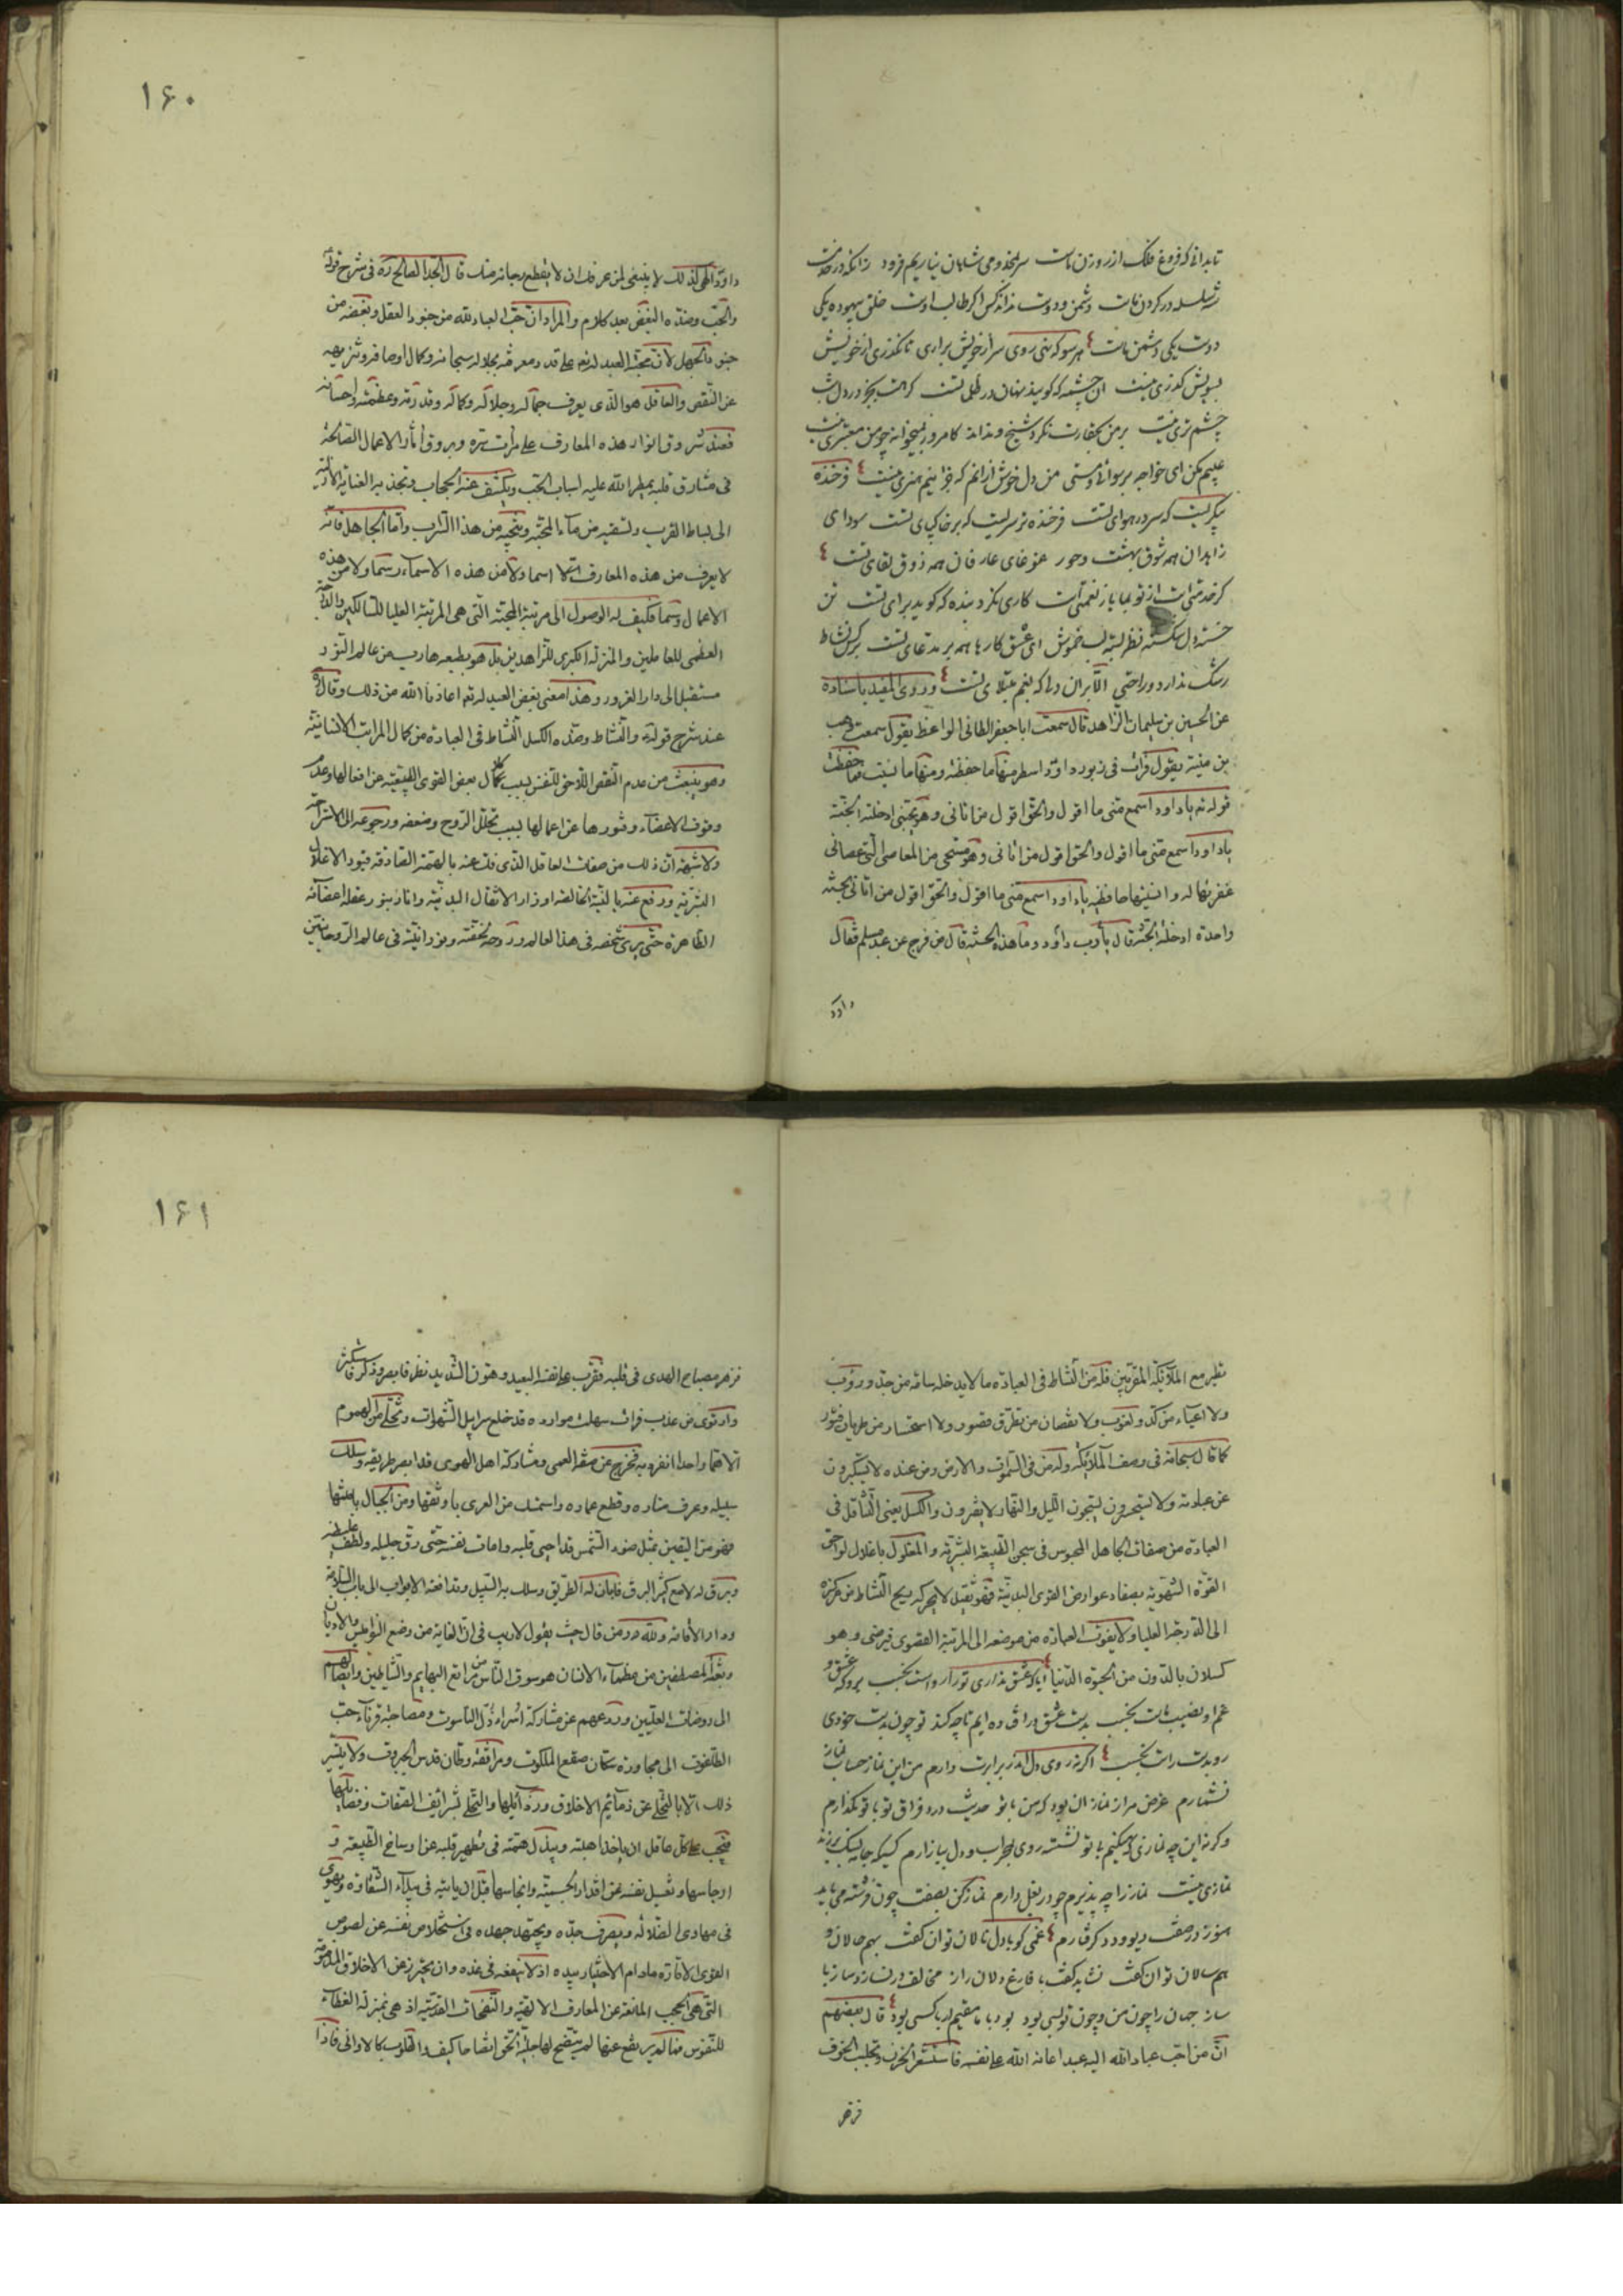 تا بدانی که فروغ فلک از روزن ماست سر مخدومی شاهان نیاریم فرود زانکه در خدمت
سلسله در گردن ماست دشمن و دوست نداند کس اگر طالب اوست خلق بیهوده یکی
دوست یکی دشمن ماست هر سو که نهی روی سر از خویش براری تا نگذری از خویش
بسویش گذری نیست آن چشمه که گویند نهان در ظلماتست
چشم تری نیست بر من بحقارت نگرد شیخ و نداند کامروز
عیبم مکن ای خواجه برسوائی و مستی من دل خوش ازانم که جز اینم هنری نیست فرخنده
پیکریست که سر در هوای تست فرخنده تر سریست که بر خاکپای تست سودای
زاهدان همه شوق بهشت و حور غوغای عارفان همه ذوق لقای تست
کاری نکرد بنده که گوید برای تست تن
خسته دل شکسته نظر بسته لب خموش ای عشق کارها همه بر مدعای تست
رشک ندارد و راحتی الا بران دلی که بغم مبتلای تست وروی المفید باسناده
عن الحسین بن سلیمان الزاهد قال سمعت ابا جعفر الطائی الواعظ یقول سمعت وهب
بن منبه یقول قرأت فی زبور داود اسطر منها ما حفظته ومنها ما نسیت فما حفظت
قوله ته یا داود اسمع منی ما اقول والحق اقول من اتانی وهو یحبنی ادخلته الجنة
یا داود اسمع منی ما اقول والحق اقول من اتانی وهو مستحی من المعاصی التی عصانی
غفرتها له وانسیتها حافظیه یا داود اسمع منی ما اقول والحق اقول من اتانی بحسنة
واحدة ادخلته الجنة قال یا رب داود وما هذه الحسنة قال من فرج عن عبد مسلم فقال
داود
۱۶۰
داود الهی کذلک لا ینبغی لمن عرفک ان لا یقطع رجائه منک قال الجد الصالح ره فی شرح قوله
والحب وضده البغض بعد کلام والمراد ان حب العباد لله من جنود العقل وبغضه من
جنود الجهل لان محبة العبد له تع علی قدر معرفته بجلاله سبحانه وکمال اوصافه وتنزیهه
عن النقص والعاقل هو الذی یعرف جماله وجلاله وکماله وقدرته وعظمته واحسانه
فعند شروق انوار هذه المعارف علی مرآت سره وبروق آثار الاعمال الصالحة
فی مشارق قلبه یمطر الله علیه اسباب الحب ویکشف عنه الحجاب وتجذبه العنایة الازلیة
الی بساط القرب ولسقیه من ماء المحبة وینجیه من هذا السراب واما الجاهل فانه
لا یعرف من هذه المعارف الا اسما ولا من هذه الاسماء رسما ولا من هذه
الاعمال وسما فکیف له الوصول الی مرتبة المحبة التی هی المرتبة العلیا للسالکین والدرجة
العظمی للعاملین والمنزلة الکبری للزاهدین بل هو بطبعه هارب من عالم النور
مستقبل الی دار الغرور وهذا معنی بغض العبد له تع اعاذنا الله من ذلک وقال ره
عند شرح قوله والنشاط وضده الکسل النشاط فی العبادة من کمال المراتب الانسانیة
وهو ینبعث من عدم النقص اللاحق للنفس بسبب کلال بعض القوی الطبیعیة عن افعالها وعدم
وقوف الاعضاء وفتورها عن اعمالها بسبب تحلل الروح وضعفه ورجوعه الی الاستراحة
ولا شبهة ان ذلک من صفات العاقل الذی فک عنه بالهمة الصادقة قیود الاغلال
البشریة ورفع عنه بالنیة الخالصة اوزار الاثقال البدنیة وانار بنور عقله اعضائه
الظاهرة حتی یری شخصه فی هذا العالم وروحه لخفته ونورانیته فی عالم الروحانیین
نظیر مع الملائکة المقربین فله من النشاط فی العبادة ما لا یدخله سامه من جد ودؤب
ولا اعیاء من کد ولغوب ولا نقصان من تطرق قصور ولا استحسار من طریان فتور
کما قال سبحانه فی وصف الملائکة وله من فی السموات والارض ومن عنده لا یستکبرون
عن عبادته ولا یستحسرون یسبحون اللیل والنهار لا یفترون والکسل یعنی التثاقل فی
العبادة من صفات الجاهل المحبوس فی سجن الطبیعة البشریة والمغلول باغلال لواحق
القوة الشهویة بصفاد عوارض القوی البدنیة فهو ثقیل لا یحرکه ریح النشاط من مرکزه
الی الدرجة العلیا ولا یفوت العبادة من موضعه الی المرتبة القصوی فیرضی وهو
کسلان بالدون من الحیوة الدنیا ایا که عشق نداری ترا رواست بخسب برو که عشق و
غم او نصیب ماست بخسب بدست عشق در افتاده ایم تا چه کند تو چون بدست خودی
رو بدست راست بخسب اگر نه روی دل اندر برابرت دارم من این نماز حساب نماز
نشمارم غرض مرا ز نماز ان بود که من با تو حدیث درد فراق تو با تو بگذارم
وگرنه این چه نمازی که میکنم با تو نشسته روی بمحراب و دل ببازارم
نمازی نیست نماز را چه پذیرم چو در بغل دارم نماز کن بصفت چون فرشته می باید
هنوز در صفت دیو و دد گرفتارم غمی کو با دل نالان توان گفت بهم حالان و
هم سالان توان گفت نشاید گفت با فارغ دلان راز مخالف در نسازد ساز با
ساز جهان را چون من و چون تو بسی بود بود با ما مقیم ار با کسی بود قال بعضهم
ان من احب عباد الله الیه عبدا اعانه الله علی نفسه فاستشعر الحزن وتجلبب الخوف
فزهر
۱۶۱
فزهر مصباح الهدی فی قلبه فقرب علی نفسه البعید وهون الشدید نظر فابصر وذکر فاستکثر
وارتوی من عذب فرات سهلت موارده قد خلع سرابیل الشهوات وتخلی من الهموم
الا هما واحدا انفرد به فخرج عن صفة العمی ومشارکة اهل الهوی قد ابصر طریقه وسلک
سبیله وعرف مناره وقطع غماره واستمسک من العری باوثقها ومن الحبال بامتنها
فهو من الیقین بمثل ضوء الشمس قد احیی قلبه وامات نفسه حتی دق جلیله ولطف غلیظه
وبرق له لامع کثیر البرق فابان له الطریق وسلک به السبیل وتدافعته الابواب الی باب السلامة
ودار الاقامة ولله در من قال حیث یقول لا ریب فی ان الغایة من وضع النوامیس والادیان
وبعثة المصطفین من عظماء الانسان هو سوق الناس من مراتع البهایم والشیاطین وایصالهم
الی روضات العلیین وردعهم عن مشارکة اسراء ذل الناسوت ومصاحبة قرناء جب
الطاغوت الی مجاورة سکان صقع الملکوت ومرافقة قطان قدس الجبروت ولا یتیسر
ذلک الا بالتخلی عن ذمائم الاخلاق ورذائلها والتحلی بشرائف الصفات وفضایلها
فیجب علی کل عاقل ان یاخذ اهبته ویبذل همته فی تطهیر قلبه عن اوساخ الطبیعة و
ارجاسها وتغسیل نفسه عن اقذار الجسمیة وانجاسها قبل ان یتیه فی بیداء الشقاوة ویهوی
فی مهاوی الضلالة ویصرف جده ویجتهد جهده فی استخلاص نفسه عن لصوص
القوی الامارة مادام الاختیار بیده اذ لا ینفعه فی غده وان یحترز عن الاخلاق المذمومة
التی هی الحجب المانعة عن المعارف الالهیة والنفحات القدسیة اذ هی بمنزلة الغطاء
للنفوس فما لم یرتفع عنها لم یتضح لها جلیة الحق اتضاحا کیف والقلوب کالاوانی فاذا